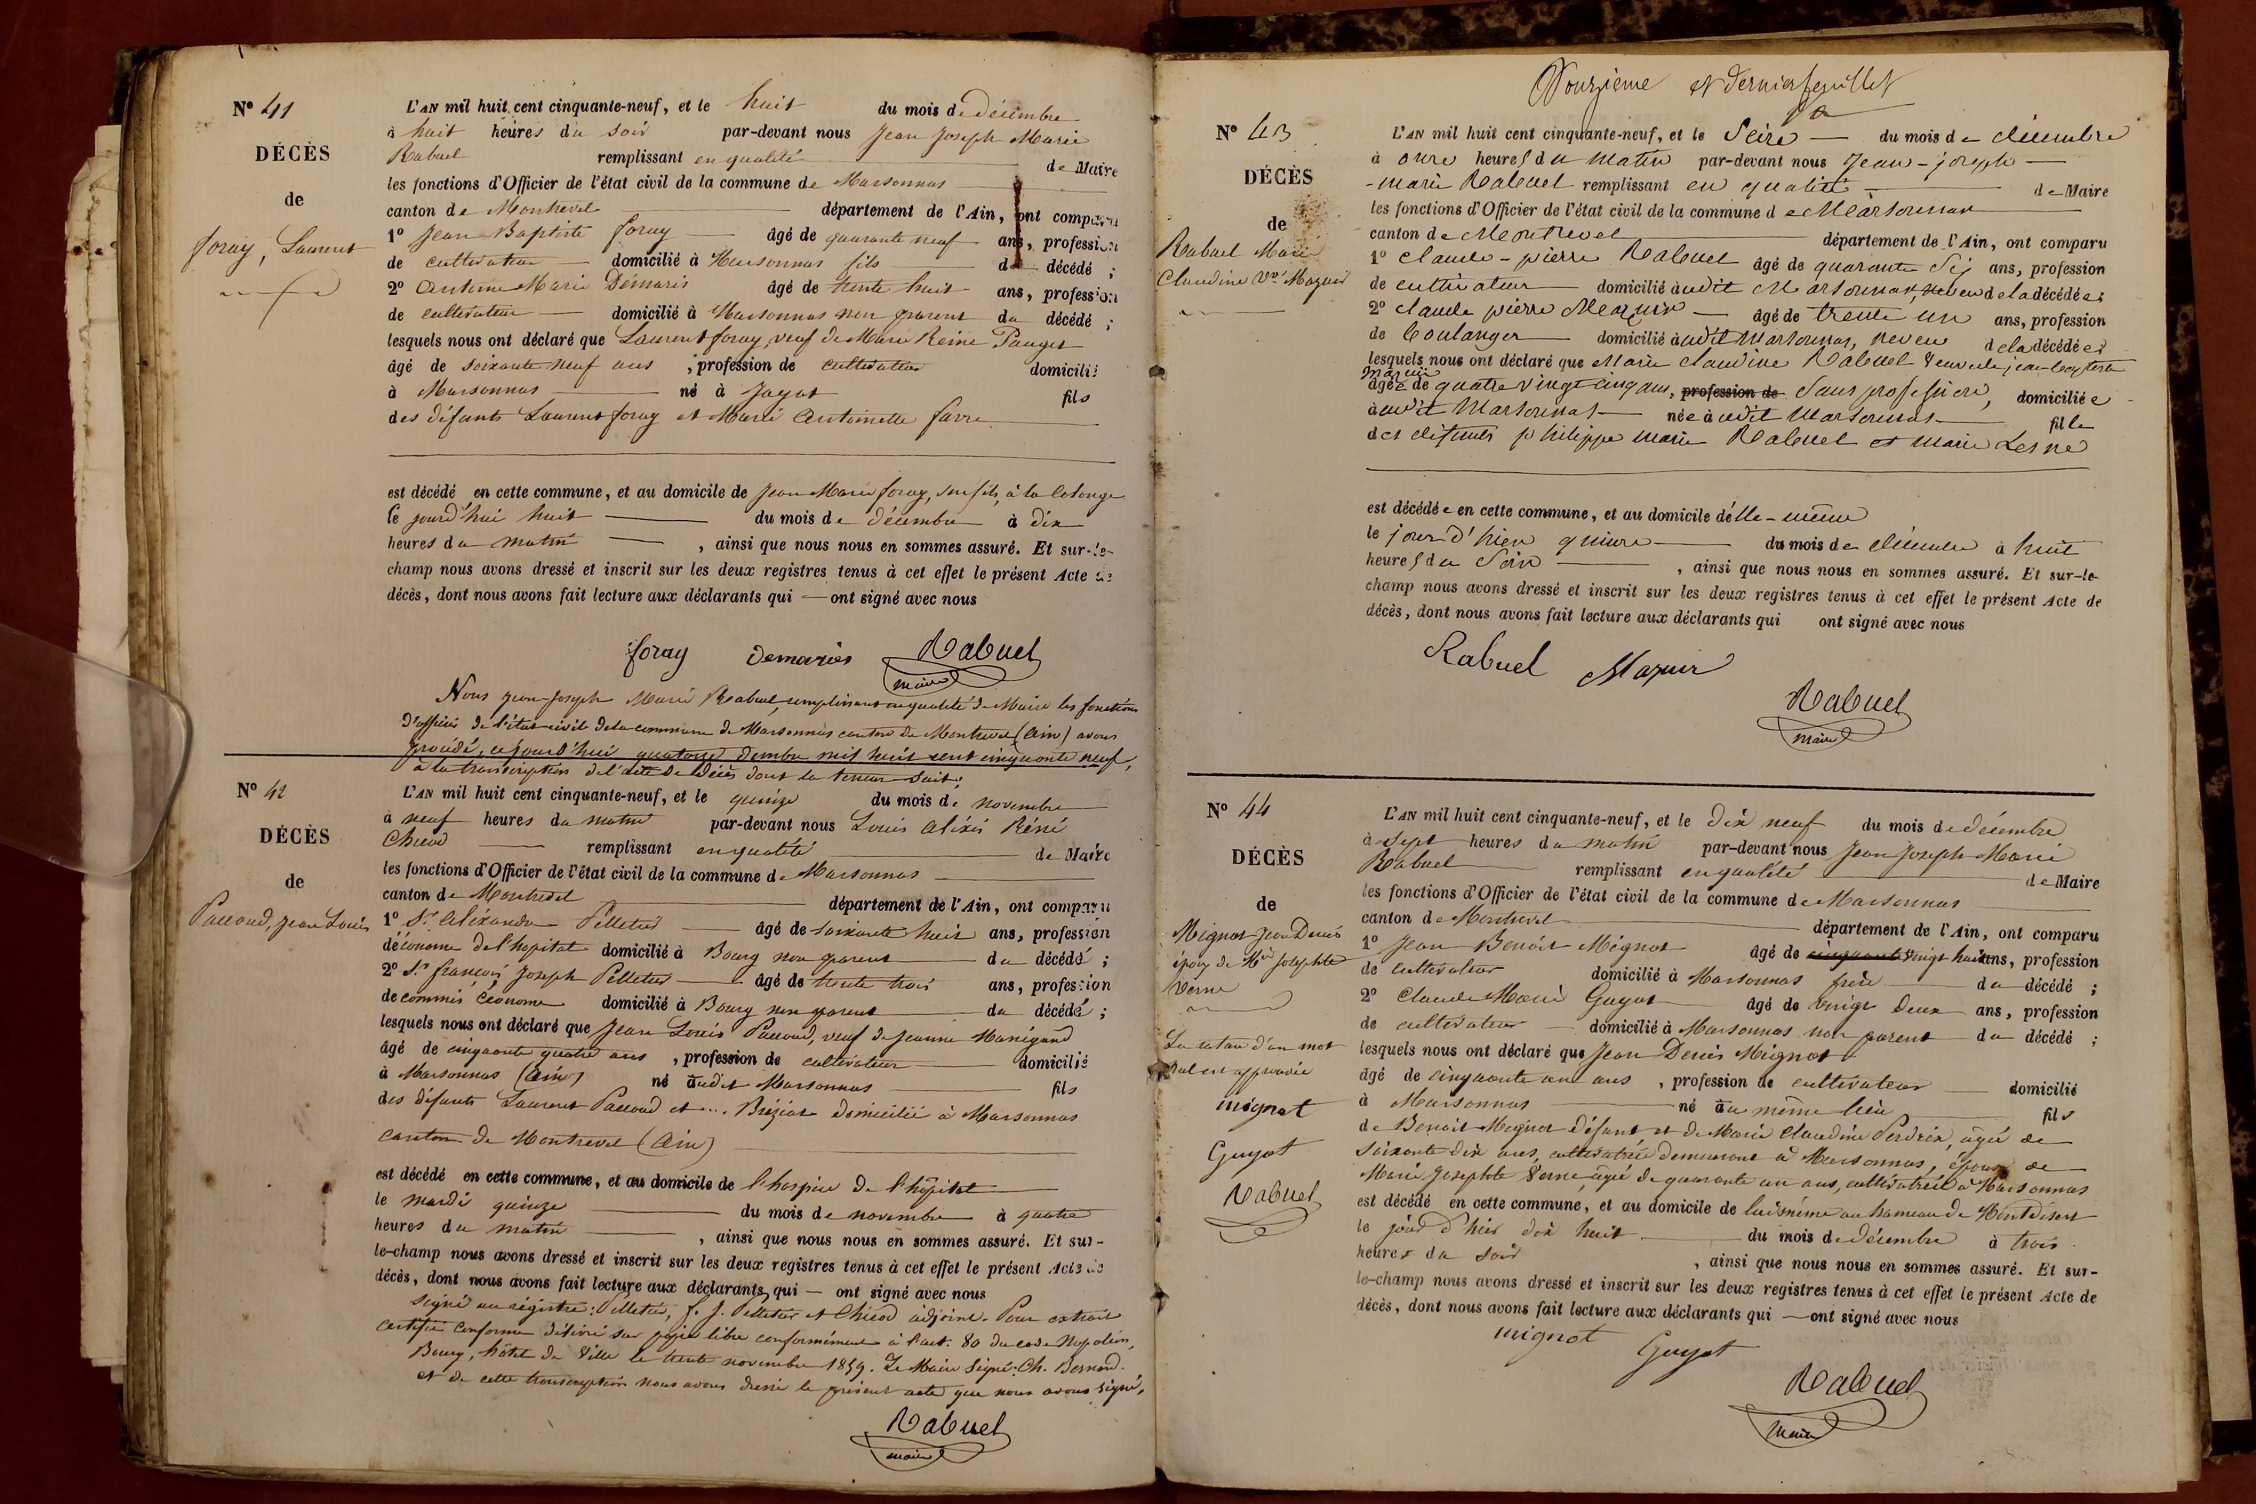 N° 41
DÉCÈS
de
foray, Laurent
L'AN mil huit cent cinquante-neuf, et le huit du mois de décembre
à huit heures du soir par-devant nous Jean Joseph Marie
Rabuel remplissant en qualité de Maire
les fonctions d'Officier de l'état civil de la commune de Marsonnas
canton de Montrevel département de l'Ain, ont comparu
1° Jean Baptiste foray âgé de quarante neuf ans, profession
de cultivateur domicilié à Marsonnas fils du décédé ;
2° Antoine Marie Démaris âgé de trente huit ans, profession
de cultivateur domicilié à Marsonnas non parent du décédé ;
lesquels nous ont déclaré que Laurent foray, veuf de Marie Reine Pauget
âgé de soixante neuf ans , profession de cultivateur domicilié
à Marsonnas né à Jayat fils
des défunts Laurent foray et Marie Antoinette favre
est décédé en cette commune, et au domicile de Jean Marie foray, son fils, à la
le jourd'hui huit du mois de décembre à dix
heures du matin , ainsi que nous nous en sommes assuré. Et sur-le-
champ nous avons dressé et inscrit sur les deux registres tenus à cet effet le présent Acte de
décès, dont nous avons fait lecture aux déclarants qui — ont signé avec nous
foray Demaries Rabuel
maire
Nous Jean-Joseph Marie Rabuel, remplissant en qualité de Maire les fonctions
d'officier de l'état-civil de la commune de Marsonnas canton de Montrevel (Ain) avons
procédé, cejourd'hui quatorze décembre mil huit cent cinquante neuf,
à la transcription de l'acte de décès dont la teneur suit :
N° 42
DÉCÈS
de
Paccoud, Jean Louis
L'AN mil huit cent cinquante-neuf, et le quinze du mois de novembre
à neuf heures du matin par-devant nous Louis Aléxis Réné
Chicod remplissant en qualité de Maire
les fonctions d'Officier de l'état civil de la commune de Marsonnas
canton de Montrevel département de l'Ain, ont comparu
1° Sr Aléxandre Pelletier âgé de soixante huit ans, profession
d'économe de l'hopital domicilié à Bourg non parent du décédé ;
2° Sr françois Joseph Pelletier âgé de trente trois ans, profession
de commis économe domicilié à Bourg non parent du décédé ;
lesquels nous ont déclaré que Jean Louis Paccoud, veuf de Jeanne Manigand
âgé de cinquante quatre ans , profession de cultivateur domicilié
à Marsonnas (Ain) né audit Marsonnas fils
des défunts Laurent Paccoud et ... Bréziat domicilié à Marsonnas
canton de Montrevel (Ain)
est décédé en cette commune, et au domicile de l'hospice de l'hôpital
le mardi quinze du mois de novembre à quatre
heures du matin , ainsi que nous nous en sommes assuré. Et sur-
le-champ nous avons dressé et inscrit sur les deux registres tenus à cet effet le présent Acte de
décès, dont nous avons fait lecture aux déclarants qui — ont signé avec nous
signé au régistre : Pelletier, f. J. Pelletier et Chicod adjoint. Pour extrait
certifié conforme délivré sur papier libre conformément à l'art. 80 du code Napoléon,
Bourg, hôtel de Ville le trente novembre 1859. Le Maire signé : Ch. Bernard.
et de cette transcription nous avons dressé le présent acte que nous avons signé.
Rabuel
maire
Douzieme et dernier feuillet
N° 43
DÉCÈS
de
Rabuel Marie
Claudine Vve Mazuir
L'AN mil huit cent cinquante-neuf, et le Seize du mois de décembre
à onze heures du matin par-devant nous Jean-joseph
-marie Rabuel remplissant en qualité de Maire
les fonctions d'Officier de l'état civil de la commune de Marsonnas
canton de Montrevel département de l'Ain, ont comparu
1° Claude-pierre Rabuel âgé de quarante Six ans, profession
de cultivateur domicilié audit Marsonnas, neveu de la décédée ;
2° claude pierre Mazuir âgé de trente un ans, profession
de boulanger domicilié audit Marsonnas, neveu de la décédée ;
lesquels nous ont déclaré que Marie claudine Rabuel Veuve de jean-baptiste
Mazuir
âgée de quatre vingt cinq ans, profession de Sans profession, domiciliée
audit Marsonnas née audit Marsonnas fille
des défunts philippe marie Rabuel et marie Lesne
est décédée en cette commune, et au domicile d'elle-même
le jour d'hier quinze du mois de décembre à huit
heures du Soir , ainsi que nous nous en sommes assuré. Et sur-le-
champ nous avons dressé et inscrit sur les deux registres tenus à cet effet le présent Acte de
décès, dont nous avons fait lecture aux déclarants qui ont signé avec nous
Rabuel Mazuir
Rabuel
maire
N° 44
DÉCÈS
de
Mignot Jean Denis
époux de Mie Josephte
Verne
La rature d'un mot
nul est approuvée
mignot
Guyot
Rabuel
L'AN mil huit cent cinquante-neuf, et le dix neuf du mois de décembre
à sept heures du matin par-devant nous Jean Joseph Marie
Rabuel remplissant en qualité de Maire
les fonctions d'Officier de l'état civil de la commune de Marsonnas
canton de Montrevel département de l'Ain, ont comparu
1° Jean Benoît Mignot âgé de cinquante vingt huit ans, profession
de cultivateur domicilié à Marsonnas frère du décédé ;
2° Claude Marie Guyot âgé de vingt deux ans, profession
de cultivateur domicilié à Marsonnas non parent du décédé ;
lesquels nous ont déclaré que Jean Denis Mignot
âgé de cinquante un ans , profession de cultivateur domicilié
à Marsonnas né au même lieu fils
de Benoît Mignot défunt et de Marie Claudine Perdrix, âgée de
soixante dix ans, cultivatrice demeurant à Marsonnas, époux de
Marie Josephte Verne âgée de quarante un ans, cultivatrice à Marsonnas
est décédé en cette commune, et au domicile de lui-même au hameau de
le jour d'hier dix huit du mois de décembre à trois
heures du soir , ainsi que nous nous en sommes assuré. Et sur-
le-champ nous avons dressé et inscrit sur les deux registres tenus à cet effet le présent Acte de
décès, dont nous avons fait lecture aux déclarants qui — ont signé avec nous
mignot
Guyot
Rabuel
maire